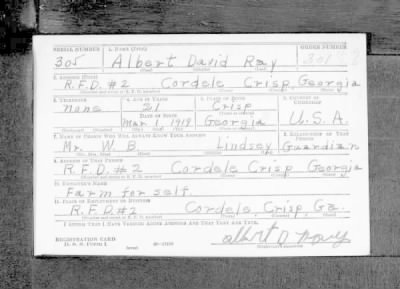 SERIAL NUMBER 1. NAME (Print) ORDER NUMBER
305 Albert David Ray 301
(First) (Middle) (Last)
2. ADDRESS (Print)
R.F.D. #2 Cordele Crisp Georgia
3. TELEPHONE 4. AGE IN YEARS 5. PLACE OF BIRTH 6. COUNTRY OF CITIZENSHIP
none 21 Crisp
DATE OF BIRTH
Mar. 1, 1919 Georgia U.S.A.
7. NAME OF PERSON WHO WILL ALWAYS KNOW YOUR ADDRESS 8. RELATIONSHIP OF THAT PERSON
Mr. W. B. Lindsey Guardian
9. ADDRESS OF THAT PERSON
R.F.D. #2 Cordele Crisp Georgia
10. EMPLOYER'S NAME
Farm for self
11. PLACE OF EMPLOYMENT OR BUSINESS
R.F.D. #2 Cordele Crisp Ga.
I AFFIRM THAT I HAVE VERIFIED ABOVE ANSWERS AND THAT THEY ARE TRUE.
REGISTRATION CARD
D. S. S. FORM 1 (over)
albert D